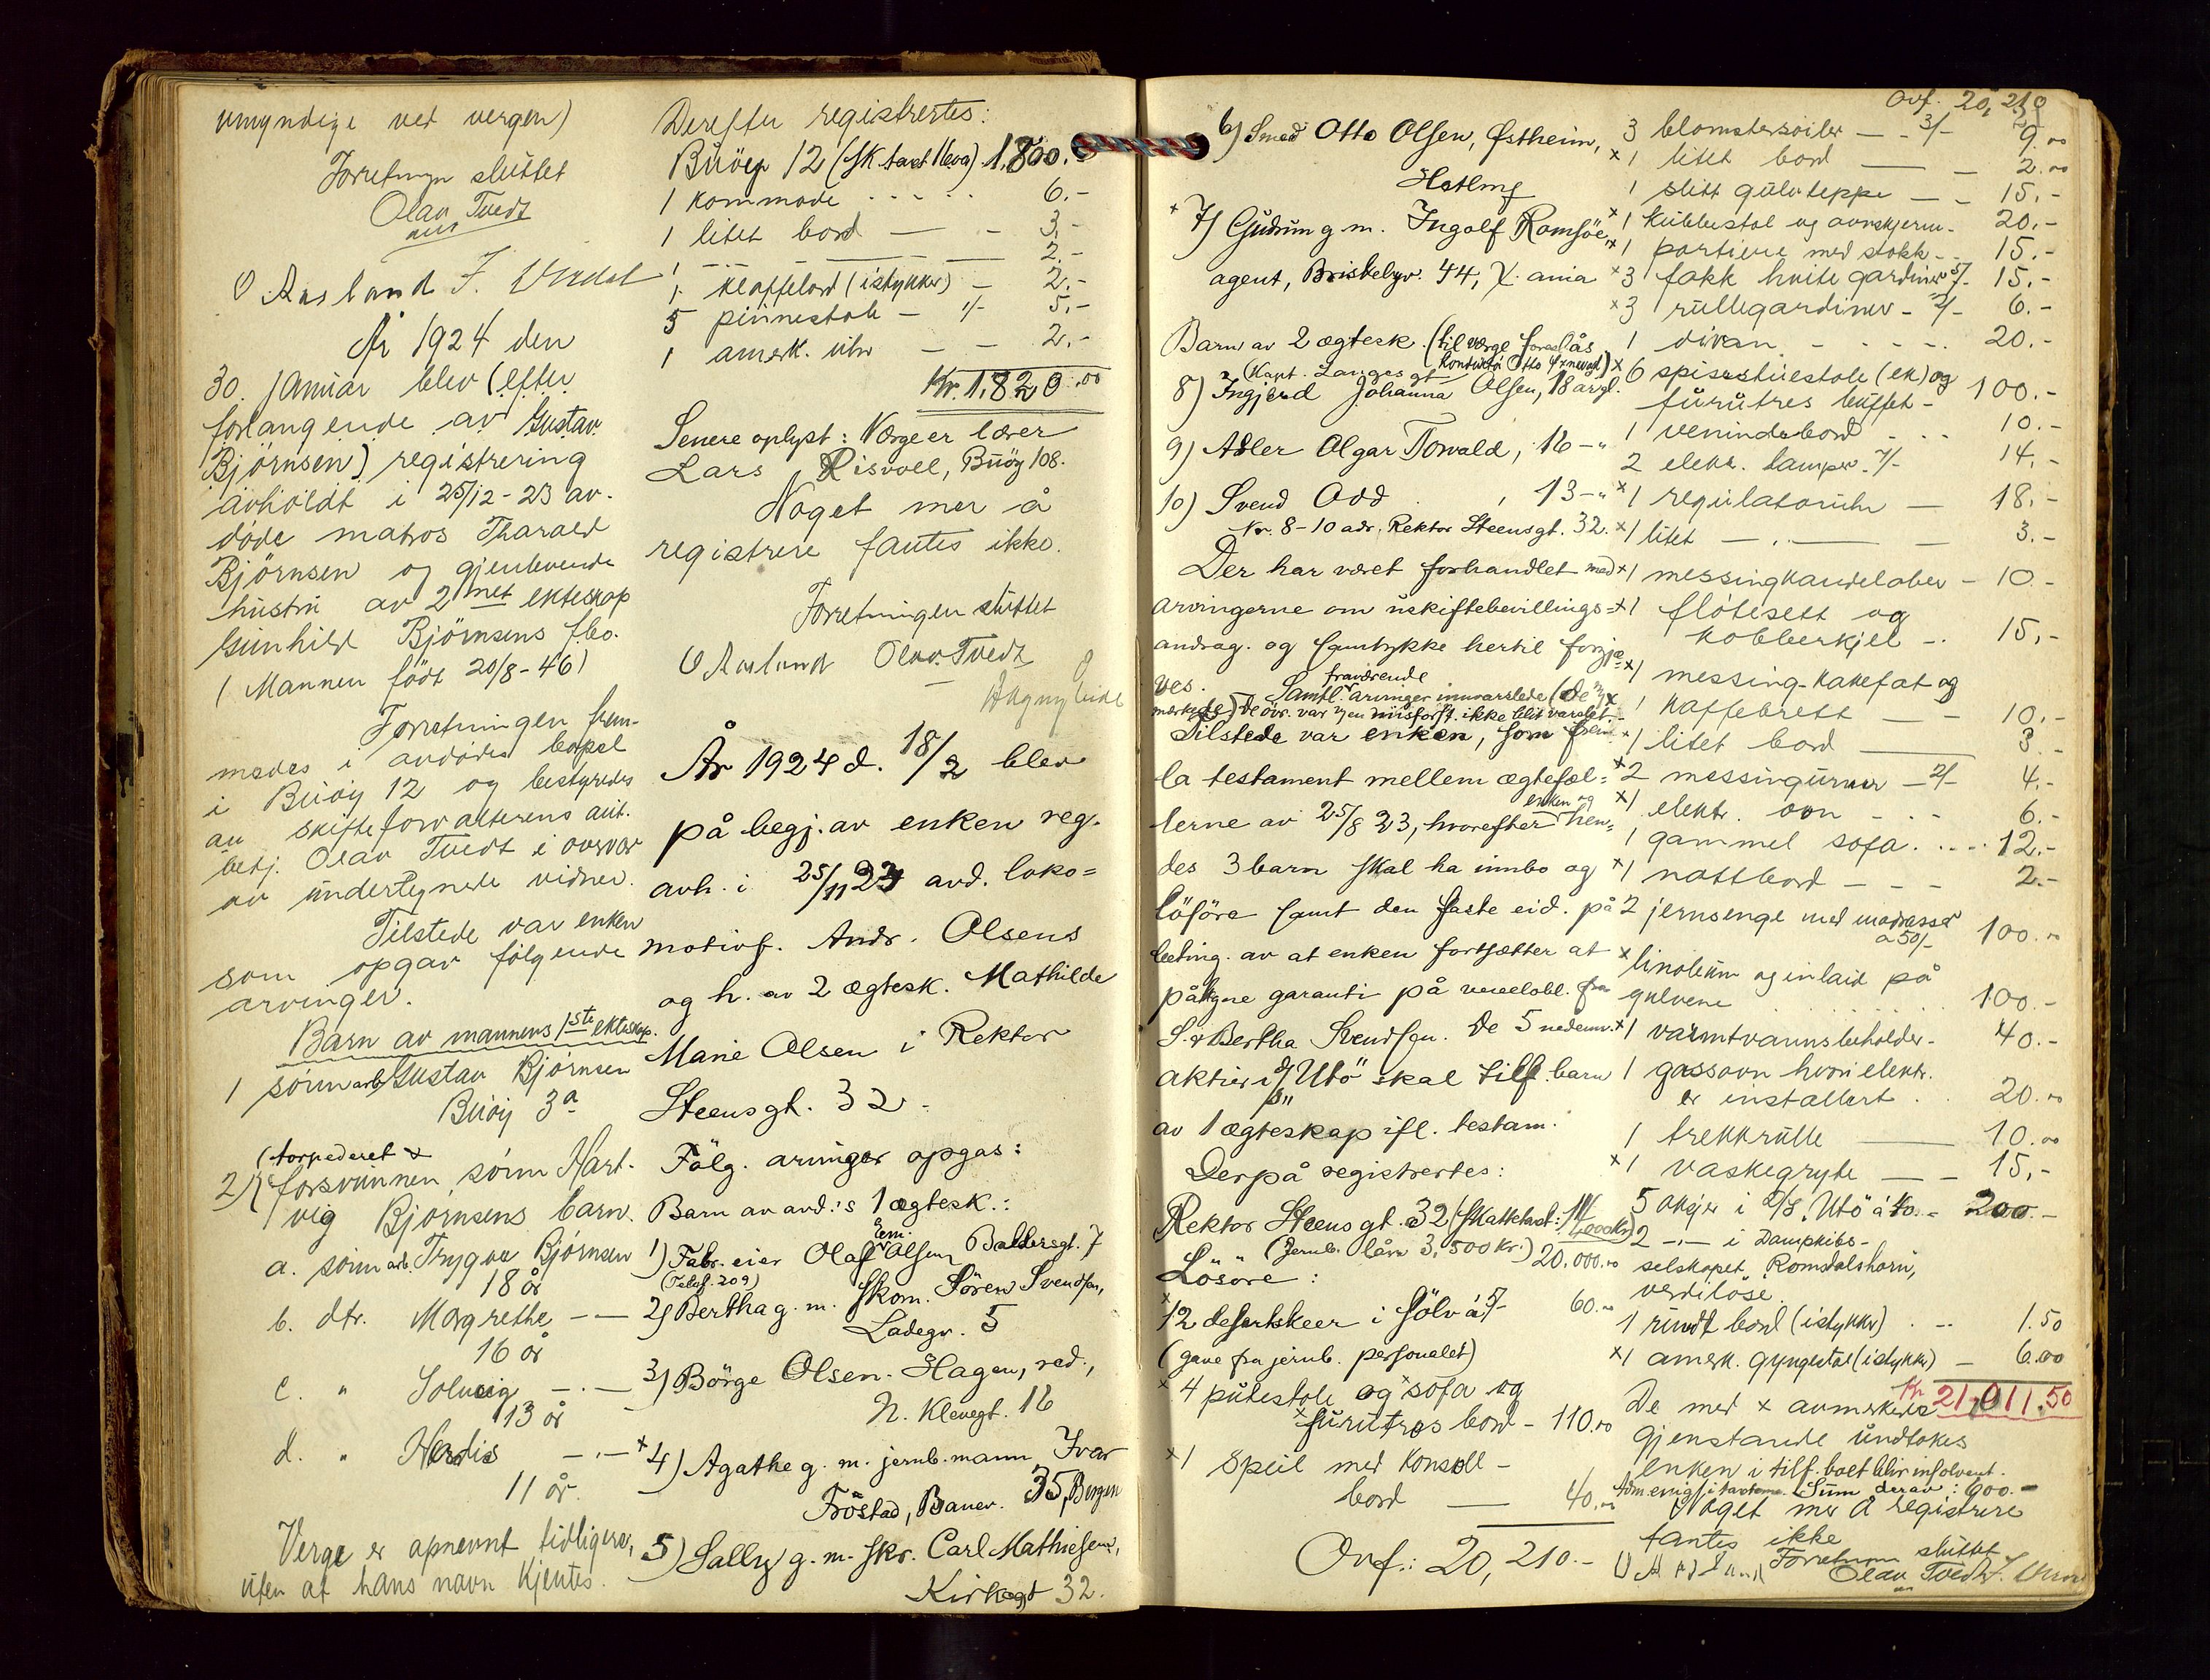 umyndige ved vergen)
Forretningen sluttet
Olav Tvedt
aut
O Aasland J.
År 1924 den
30. januar blev (efter
forlangende av Gustav
Bjørnsen) registrering
avholdt i 25/12-23 av-
døde matros Tharald
Bjørnsen og gjenlevende
hustru av 2net ekteskap
Gunhild Bjørnsens fbo.
(Mannen født 20/8-46)
Forretningen frem-
medes i avdødes bopel
i Buøy 12 og bestyredes
av skifteforvalterens aut.
betj. Olav Tvedt i overvær
av undertegnede vidner.
Tilstede var enken
som opgav følgende
arvinger.
Barn av mannens 1ste ekteskap.
1 sønn arb. Gustav Bjørnsen
Buøy 3a
(torpederet &
2) forsvunnen sønn Hart-
vig Bjørnsens barn.
a. sønn arb. Trygve Bjørnsen
18 år
b. dtr. Margrethe -"-
16 år
c. " Solveig -"-
13 år
d. " Herdis -"-
11 år.
Verge er opnevnt tidligere,
uten at hans navn kjentes.
Derefter registrertes:
Buøy 12 (sk.taxt 11000) 1,800.-
1 kommode . . . . . 6.-
1 litet bord — - 3.-
1 — — — 2.-
1 klaffebord (istykker) - 2.-
5 pinnestole - 1/- 5.-
1 amerk. uhr - - 2.-
Kr. 1,820.00
Senere oplyst: Verge er lærer
Lars Risvoll, Buøy 108.
Noget mer å
registrere fantes ikke.
Forretningen sluttet
O Aasland Olav Tvedt
År 1924 d. 18/2 blev
på begj. av enken reg.
avh. i 25/11 23 avd. loko=
motivf. Andr. Olsens
og h. av 2 ægtesk. Mathilde
Marie Olsen i Rektor
Steensgt. 32.
Følg. arvinger opgas:
Barn av avd.'s 1 ægtesk.:
1) Fabr. eier Olaf Em. Olsen, Baldersgt. 7
(Telef. 209)
2) Bertha g. m. skom. Sören Svendsen,
Ladegv. 5
3) Börge Olsen-Hagen, red.,
N. Klevegt. 16
x 4) Agathe g. m. jernb.mann Ivar
Fröstad, Banev. 35, Bergen
5) Sally g. m. skr. Carl Mathiesen,
Kirkegt 32.
6) Smed Otto Olsen, Østheim,
Hetland
x 7) Gudrun g. m. Ingolf Ramsöe,
agent, Briskebyv. 44, X.ania
Barn av 2 ægtesk. (til værge foreslås
(Kapt. Langes gt. kontorist Otto
8) Ingjerd Johanna Olsen, 18 år gl.
9) Adler Olgar Torvald, 16 -"
10) Svend Odd , 13 -"
Nr. 8-10 adr. Rektor Steensgt. 32.
Der har været forhandlet med
arvingerne om uskiftebevillings=
andrag. og samtykke hertil forgjæ=
ves.
fraværende
Samtl. arvinger innvarslede (de m/ x
merkede) De övr. var v/ en misforst. ikke blit varslet.
Tilstede var enken, som frem=
la testament mellem ægtefæl=
lerne av 25/8 23, hvorefter enken og hen=
des 3 barn skal ha innbo og
lösöre samt den faste eid. på
beting. av at enken fortsætter at
påtegne garanti på vexelobl. fra
S. & Bertha Svendsen. De 5 nedenn.
aktier i D/S "Utö" skal tilf. barn
av 1 ægteskap ifl. testam.
Derpå registrertes:
Rektor Steensgt. 32 (Skattetakst:
(Jernb. lån 3,500 kr.) 20,000.00
Lösöre:
x 12 dessertskeer i sölv à 5/- 60.00
(gave fra jernb. personalet)
x 4 putestole og x sofa og
x furutræs bord - 110.00
x 1 speil med konsoll-
bord — 40.00
Ovf.: 20,210.-
Ovf. 20,210
3 blomstersöiler - - 3/- 9.00
x 1 litet bord — - 2.00
1 slitt gulvteppe - - 15.-
x 1 kubbestol og ovnskjerm - 20.-
x 1 portiere med stokk - 15.-
x 3 fakk hvite gardiner 5/- 15.-
x 3 rullegardiner - 2/- 6.-
1 divan - - - - - 20.-
x 6 spisestuestole (ek) og
furutres buffet - 100.-
1 venindebord - - - 10.-
2 elektr. lamper 7/- 14.-
x 1 regulatoruhr — 18.-
x 1 litet -"- — 3.-
x 1 messingkandelaber - 10.-
x 1 flötesett og
kobberkjel - 15.-
x 1 messing-kakefat og
1 kaffebrett — - 10.-
x 1 litet bord — 3.-
x 2 messingurner - 2/- 4.-
x 1 elektr. ovn - - - 6.-
1 gammel sofa . . . . 12.-
x 1 nattbord - - - 2.-
2 jernsenge med madrasser
à 50/- 100.00
x linoleum og inlaid på
gulvene . . . . . . 100.-
x 1 varmtvannsbeholder - 40.-
1 gassovn hvori elektr.
er installert . . 20.00
1 trekkrulle — 10.00
x 1 vaskegryte - - 15.-
5 aksjer i D/S. Utö à 40.- 200.-
2 -"- i Dampskibs-
selskapet Romsdalshorn,
verdilöse.
1 rundt bord (istykker) . - - 1.50
x 1 amerk. gyngestol (istykker) - 6.00
Kr. 21,011.50
De med x avmerkede
gjenstande undtokes
enken i tilf. boet blir insolvent.
Sum derav: 600.-
Noget mer å registrere
fantes ikke
Forretningen sluttet
O Aasland Olav Tvedt